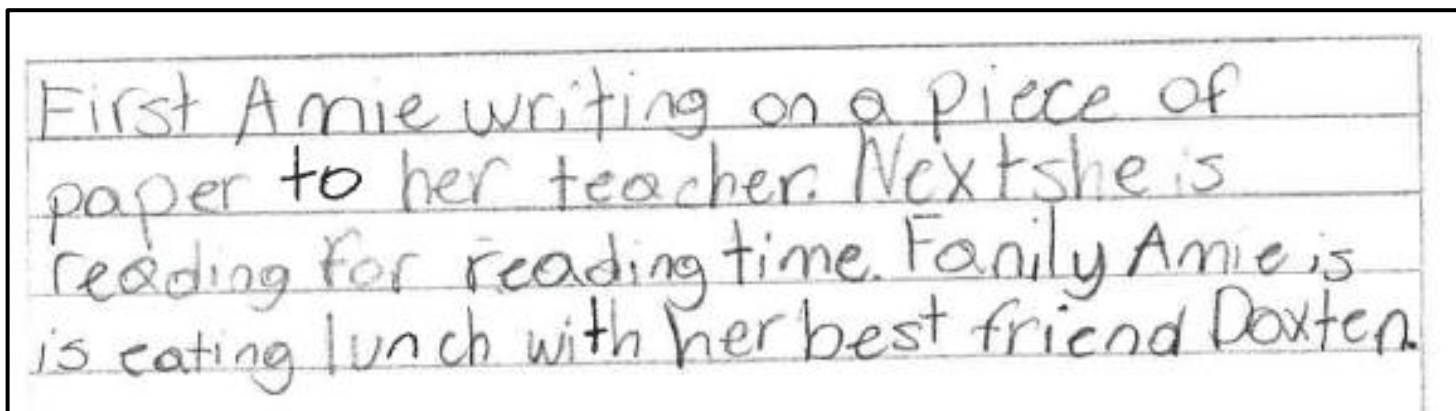 First Amie writing on a piece of
paper to her teacher. Next she is
reading for reading time. Fanily Amie is
is eating lunch with her best friend Daxten.